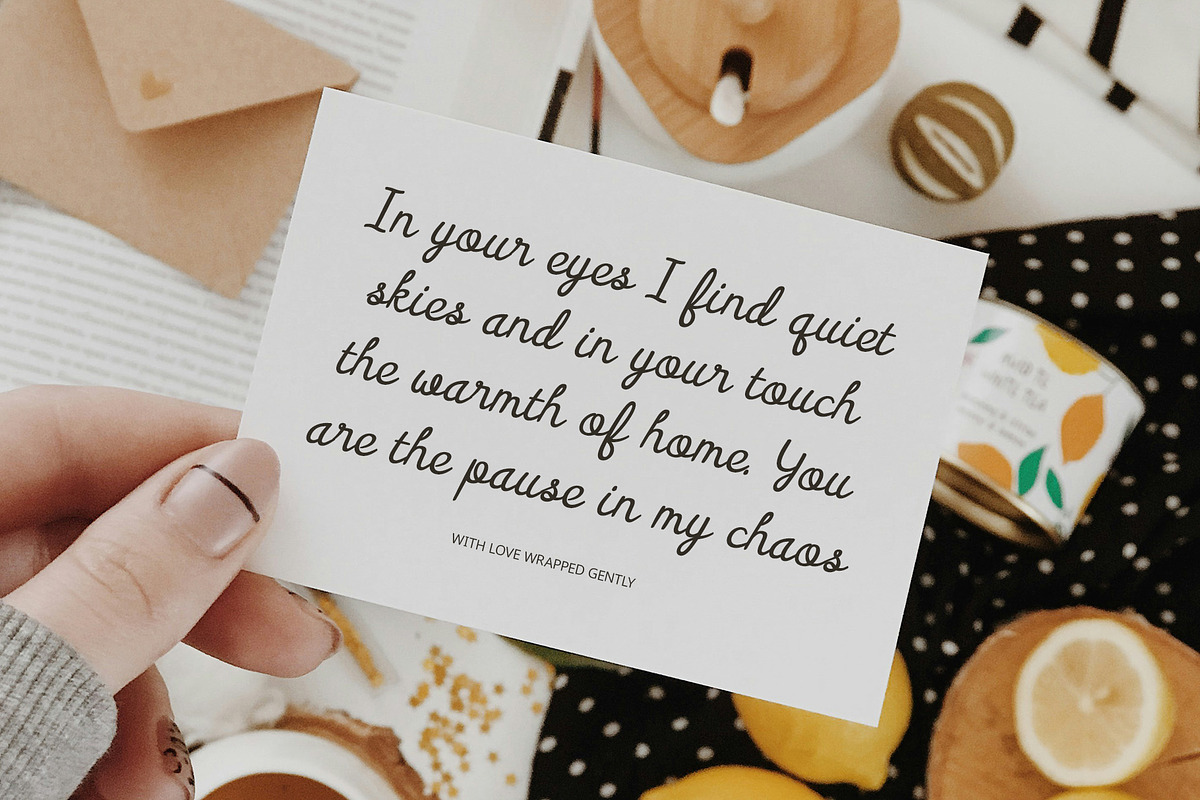 In your eyes I find quiet
skies and in your touch
the warmth of home. You
are the pause in my chaos
WITH LOVE WRAPPED GENTLY